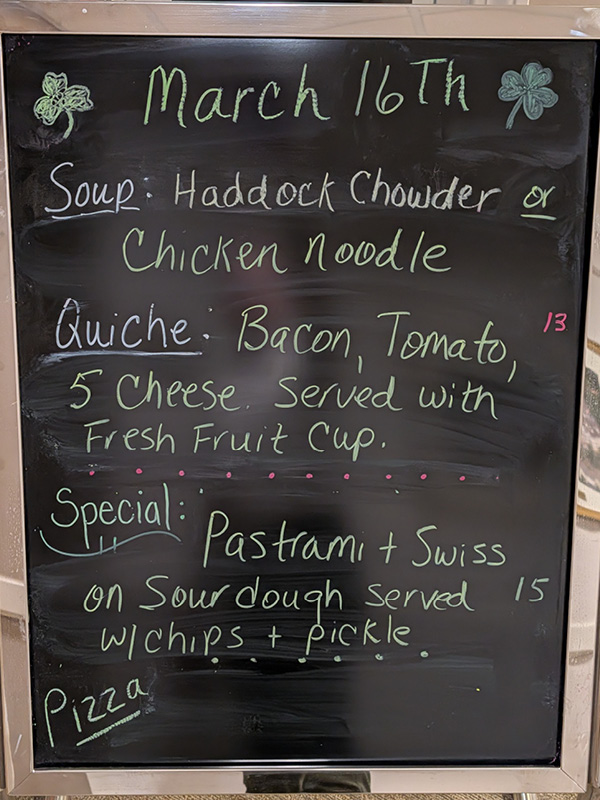 March 16Th
Soup: Haddock Chowder or
Chicken noodle
Quiche: Bacon, Tomato, 13
5 Cheese. Served with
Fresh Fruit Cup.
Special: Pastrami + Swiss
on Sourdough served 15
w/chips + pickle
Pizza